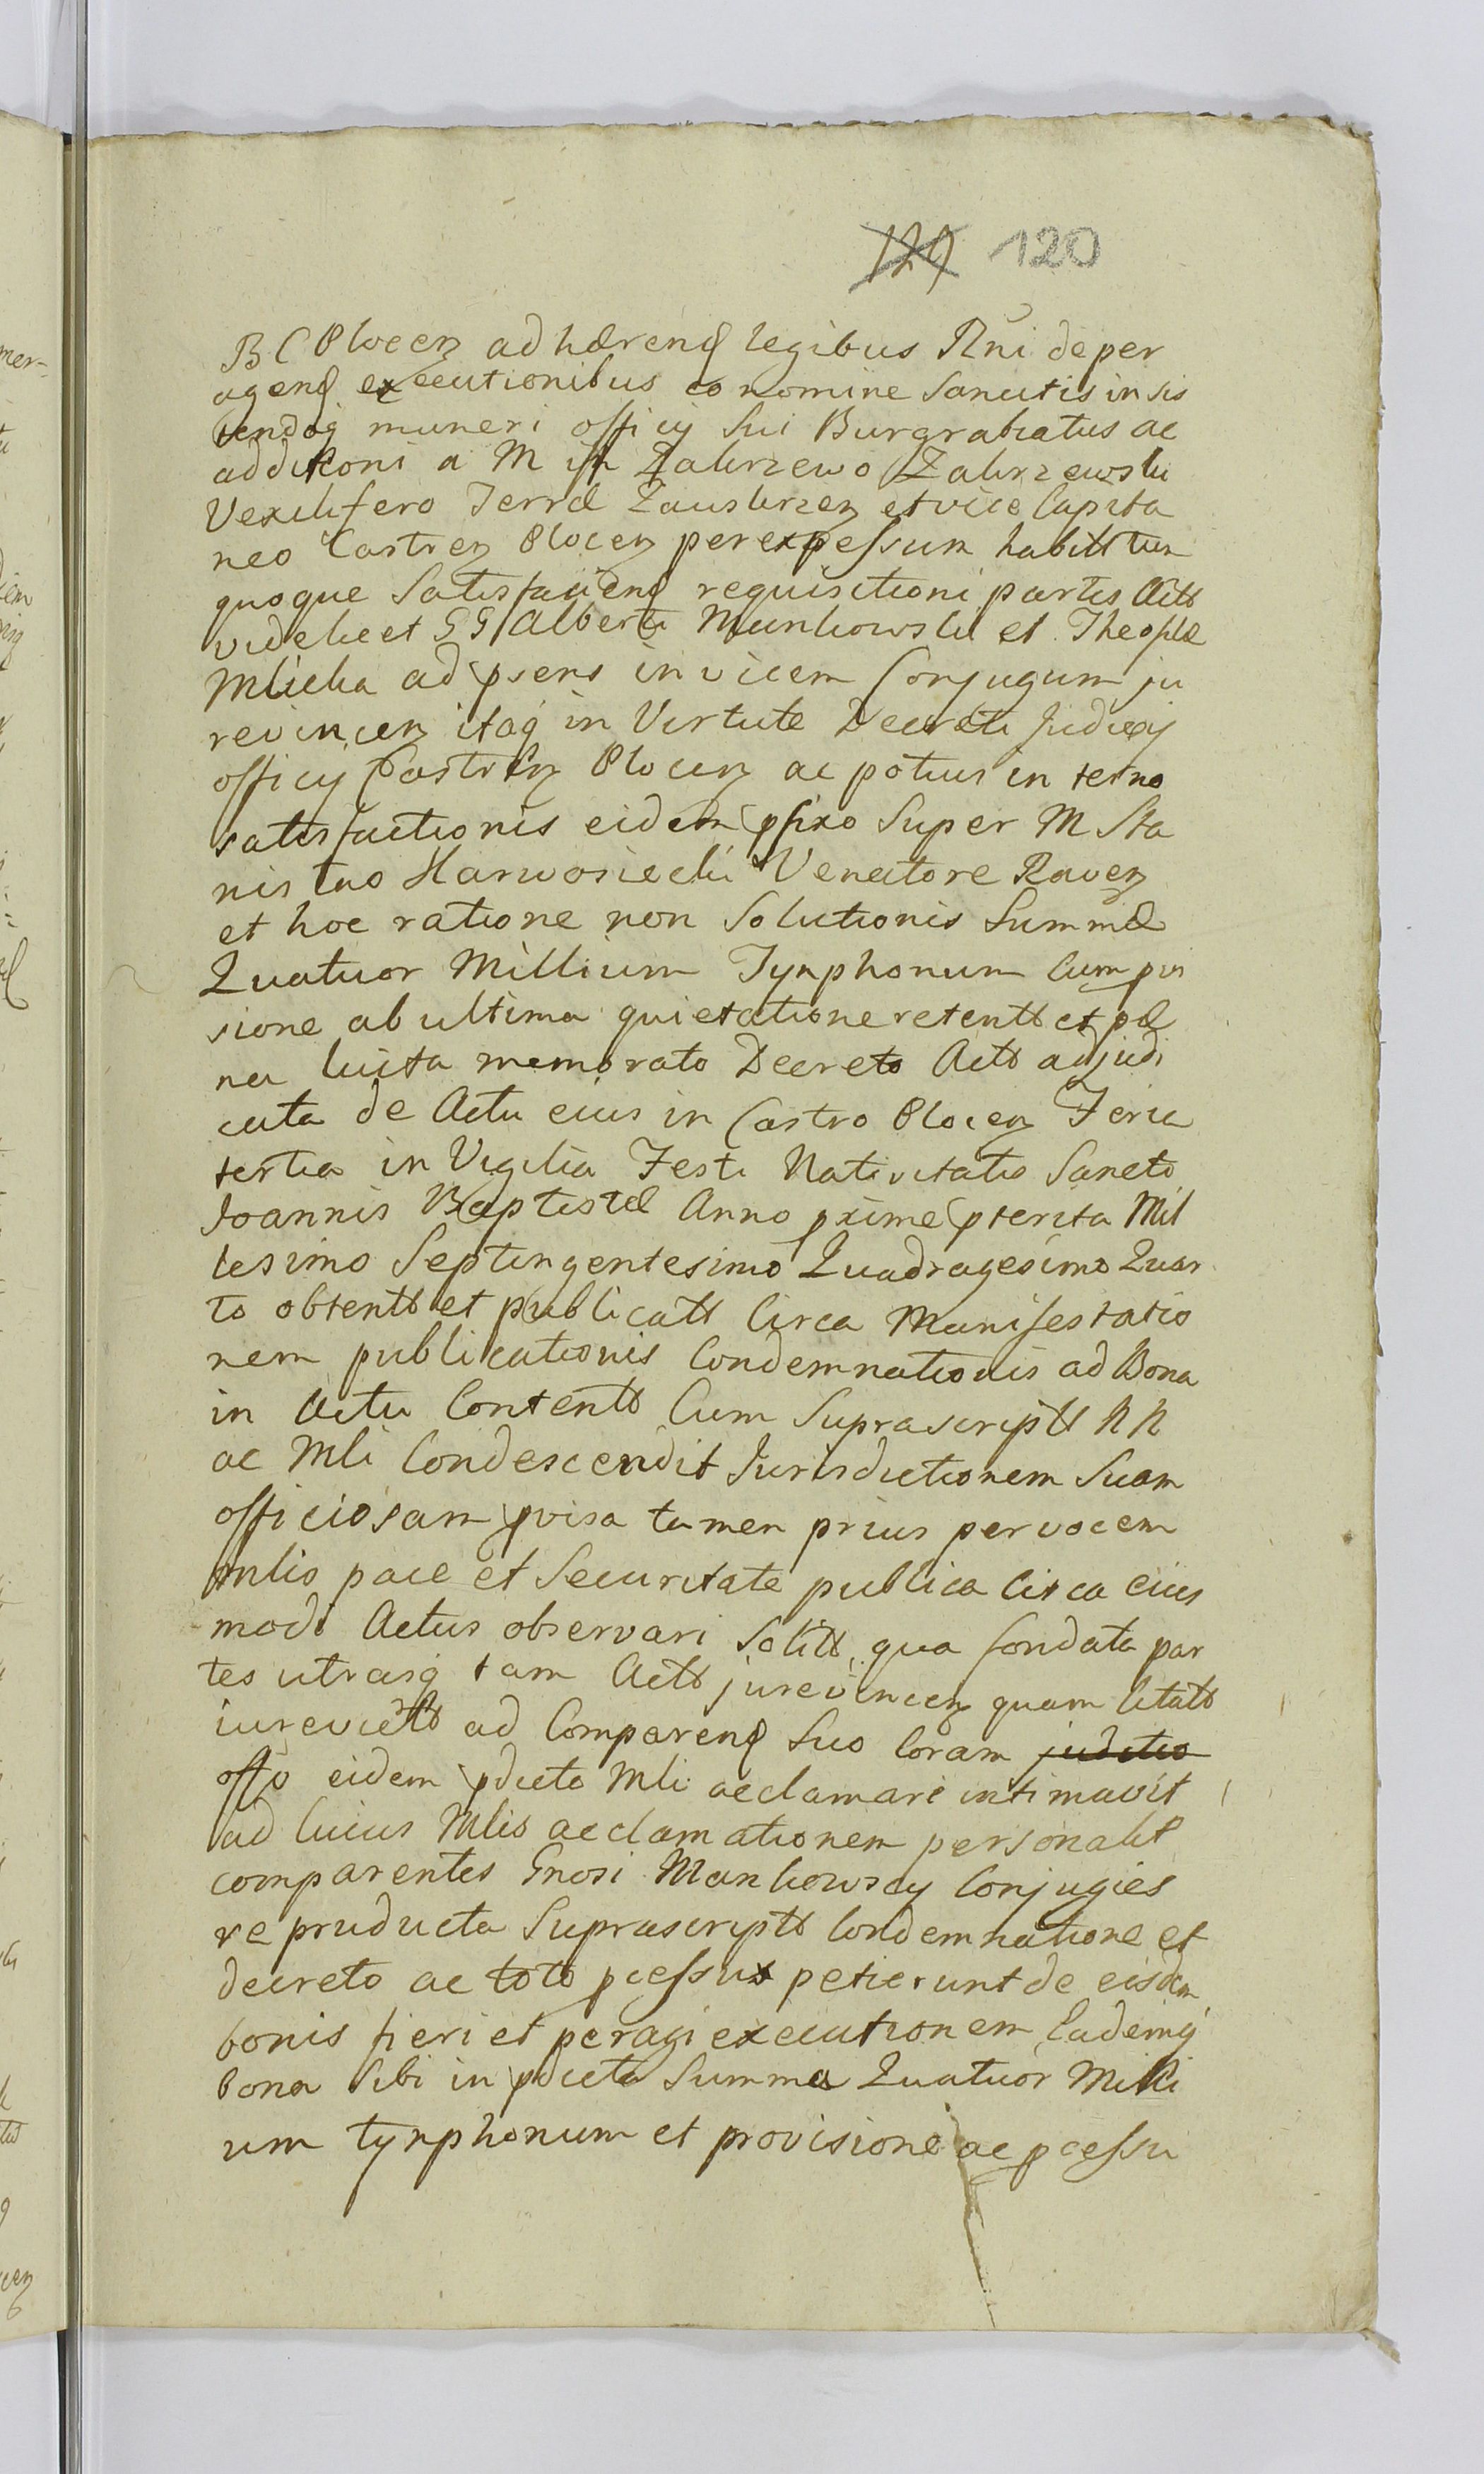 129 120
B C Plocen adhærend legibus Rñi de per
agend executionibus eo nomine Sancitis in sis
tendoq muneri officij Sui Burgrabiatus ac
additioni a M in Zakrzewo Zakrzewski
Vexilifero Terræ Zauskrzen et vice Capita
neo Castren Plocen per expessum habitt tum
quoque Satisfaciend requisitioni partis Actt
videlicet GG Alberti Mankowski et Theophilæ
Mlicka ad psens invicem Conjugum ju
revincen itaq in Virtute Decreti Judicij
officij Castren Plocen ac potius in termo
satisfactionis eidem pfixo Super M Sta
nislao Karwosiecki Venatore Raven
et hoc ratione non Solutionis Summæ
Quatuor Millium Tynphonum Cum pvi
sione ab ultima quietatione retentt et pæ
na luita memorato Decreto Actt adjudi
cata de Actu eius in Castro Plocen Feria
tertia in Vigilia Festi Nativitatis Sancti
Joannis Baptistæ Anno pxime pterita Mil
lesimo Septingentesimo Quadragesimo Quar
to obtentt et publicatt Circa Manifestatio
nem publicationis Condemnationis ad Bona
in Actu Contentt Cum Suprascriptt NN
ac Mli Condescendit Jurisdictionem Suam
officiosam pvisa tamen prius per vocem
mlis pace et Securitate publica Circa eius
modi Actus observari Solitt, qua fondata par
tes utrasq tam Actt jurevincen quam Citatt
iurevictt ad Comparend Suo Coram juditio
offo eidem pdicto Mli acclamare intimavit
ad Cuius Mlis acclamationem personalit
comparentes Gnosi Mankowscy Conjuges
re pruducta Suprascriptt Condemnatione et
decreto ac toto pcessu petierunt de eisdem
bonis fieri et peragi executionem Eademq
bona Sibi in pdicta Summa Quatuor Milli
um tynphonum et provisione ac pcessu